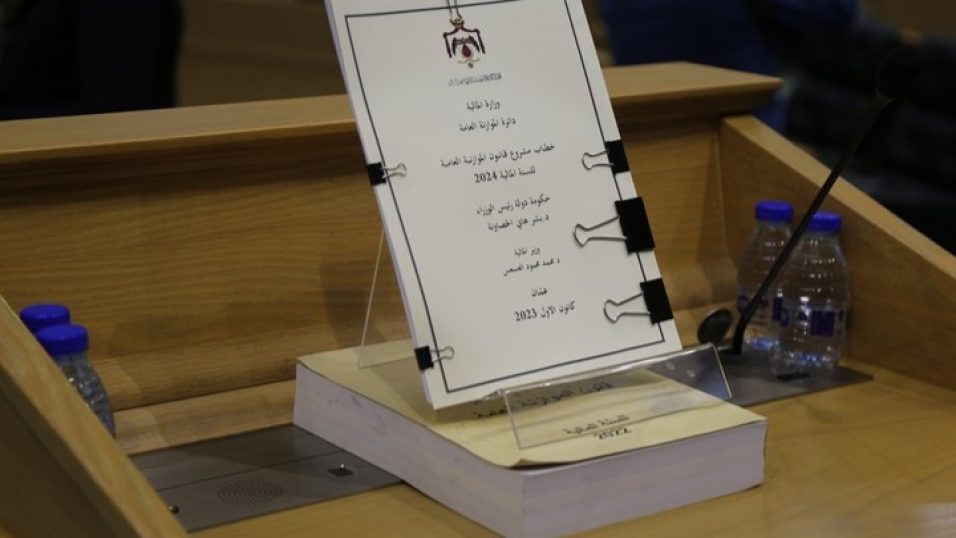 وزارة المالية
دائرة الموازنة العامة
خطاب مشروع قانون الموازنة العامة
للسنة المالية 2024
حكومة دولة رئيس الوزراء
د. بشر هاني الخصاونة
وزير المالية
د. محمد محمود العسعس
عمّان
كانون الاول 2023
قانون الموازنة العامة
للسنة المالية
2022